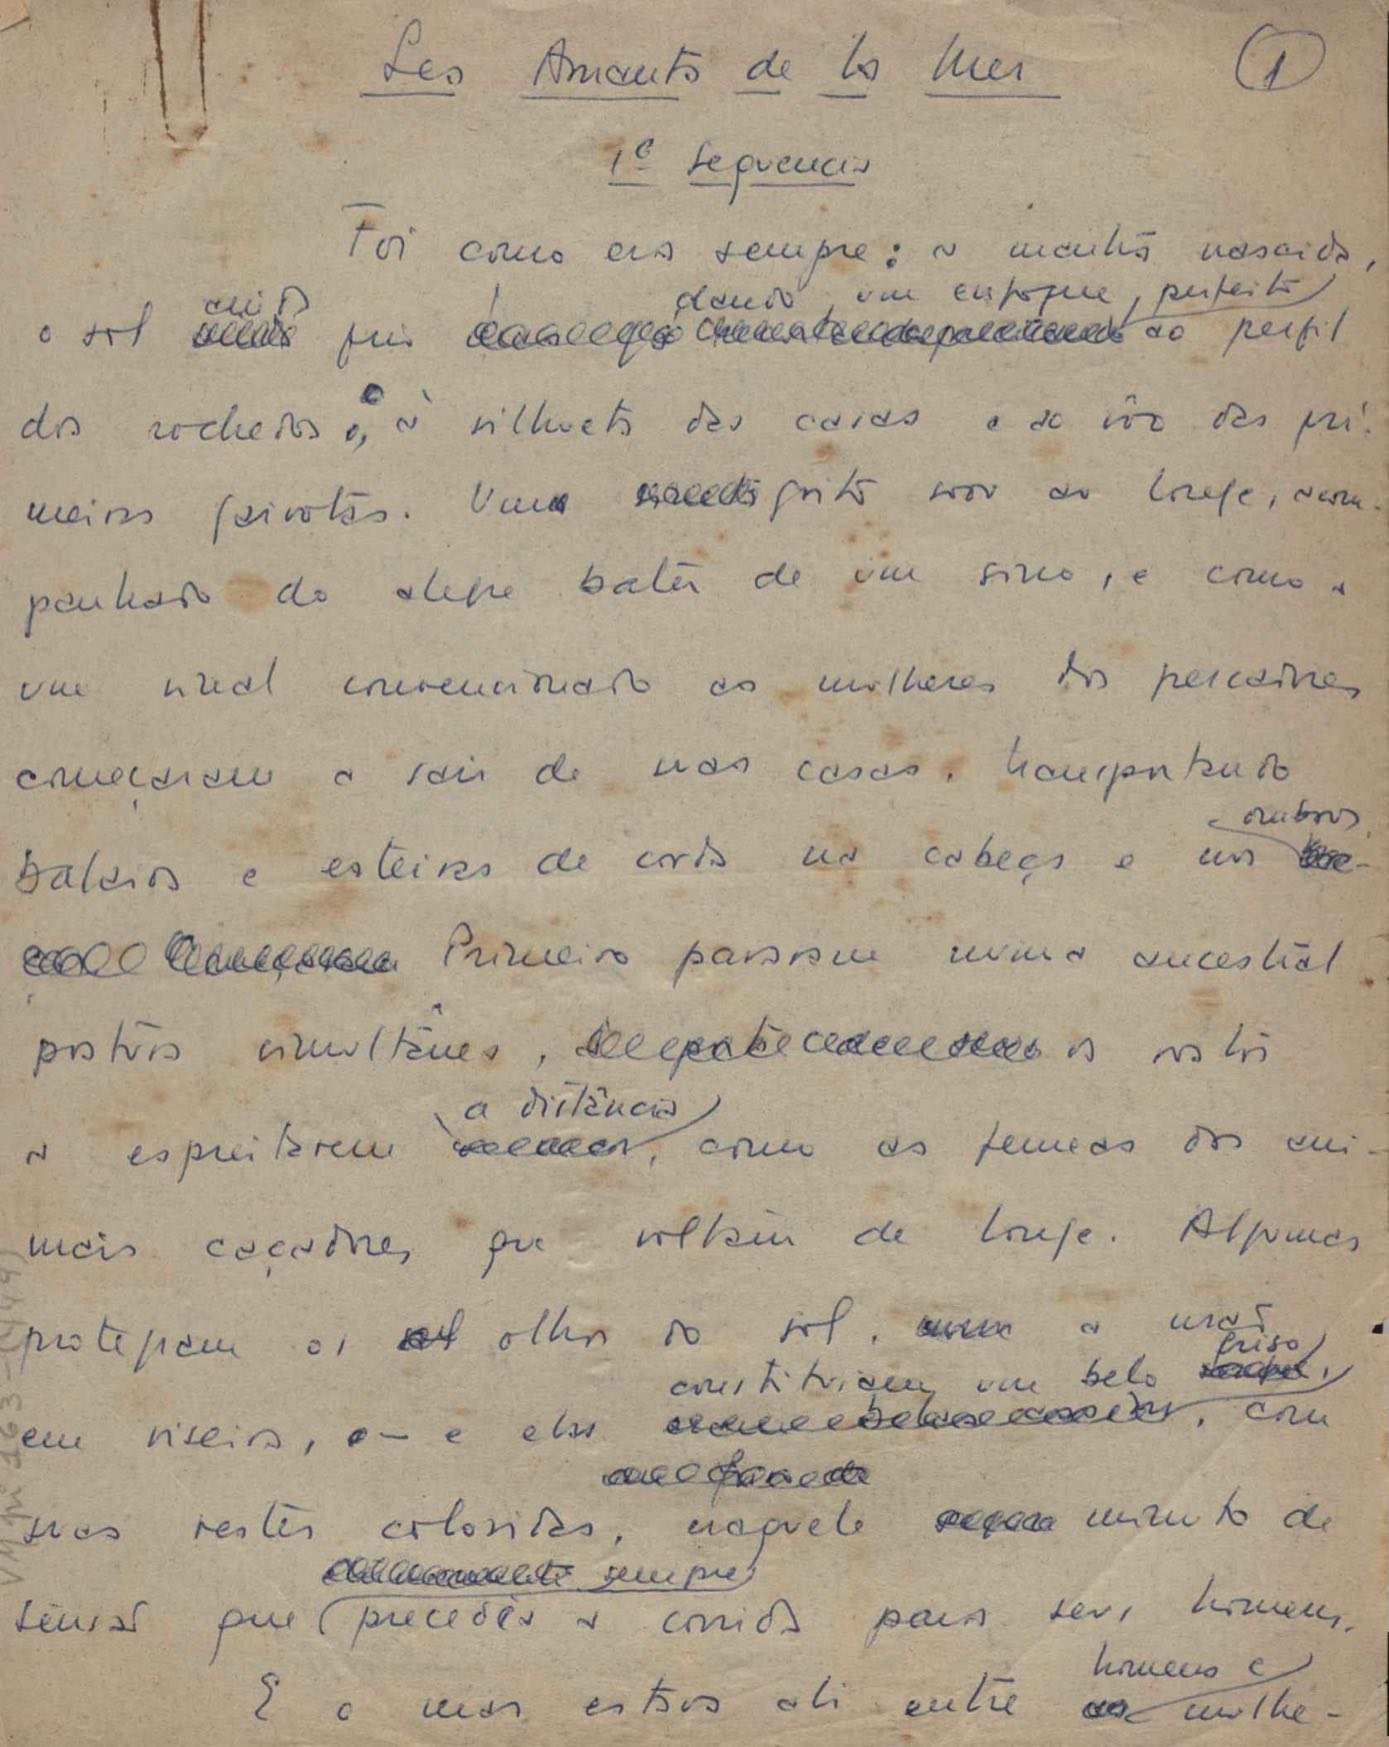 Les Amants de la Mer
1
1ª Sequencia
Foi como era sempre: a manhã nascida,
o sol ainda frio dando um enfoque perfeito ao perfil
dos rochedos, à silhueta das casas e ao vôo das pri-
meiras gaivotas. Um grito soou ao longe, acom-
panhado do alegre bater de um sino, e como a
um sinal convencionado as mulheres dos pescadores
começaram a sair de suas casas, transportando
balaios e esteiras de corda na cabeça e nos ombros.
Primeiro pararam numa ancestral
postura simultânea, os rostos
a espreitarem a distância, como as femeas dos ani-
mais caçadores que voltam de longe. Algumas
protegiam os olhos do sol, a mão
em viseira, - e elas constituiam um belo friso, com
suas vestes coloridas, naquele minuto de
tensão que sempre precedia a corrida para seus homens.
E o mar estava ali entre homens e mulhe-